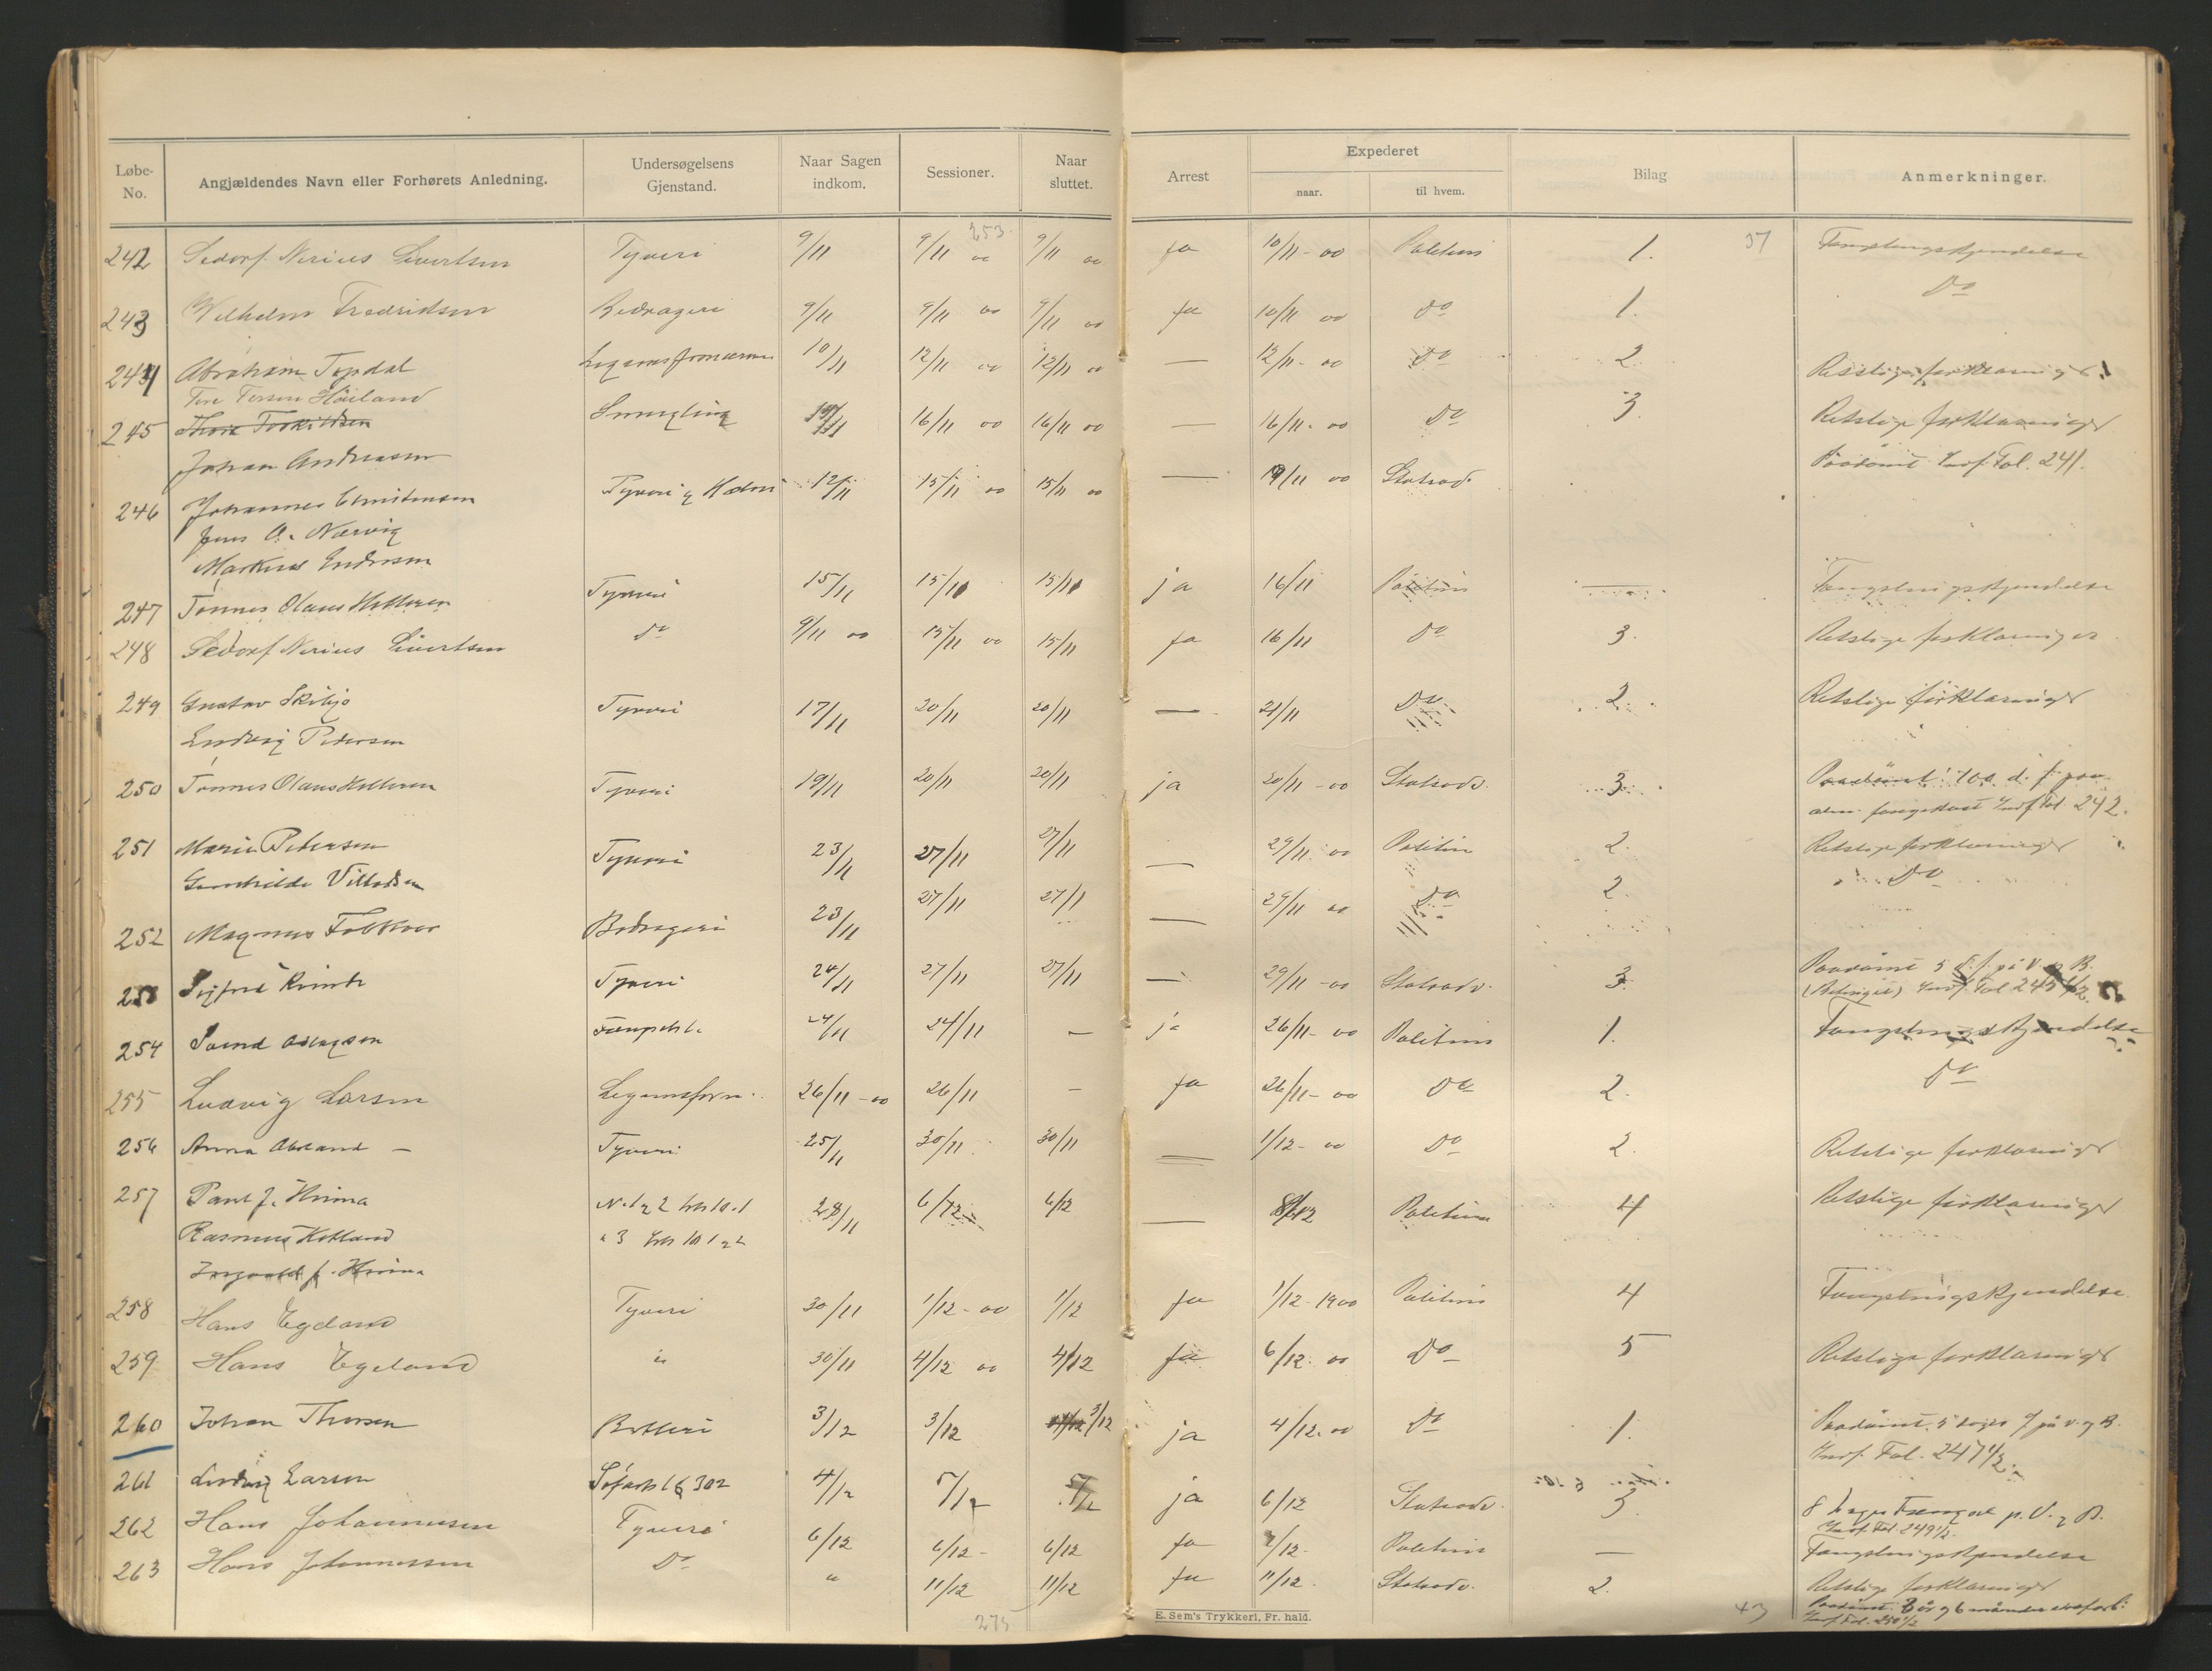 Løbe-No. Angjældendes Navn eller Forhørets Anledning. Undersøgelsens Gjenstand. Naar Sagen indkom. Sessioner. Naar sluttet. Arrest Expederet naar. til hvem. Bilag Anmerkninger.
253. 37
242 Sedorf Nerius Sivertsen Tyveri 9/11 9/11 00 9/11 00 ja 10/11-00 Politiet 1. Fængslingskjendelse
243 Vilhelm Fredriksen Bedrageri 9/11 9/11 00 9/11 00 ja 10/11 00 Do 1. Do
244 Abraham Topdal 10/11 12/11 00 12/11 00 — 12/11-00 Do 2. Retslige forklaringer
Tore Torsen Høiland
245 Smugling 16/11 00 16/11 00 — 16/11-00 Do 3. Retslige forklaringer
Johan Andreasen
246 Johannes Christensen Tyveri og Hæleri 12/11 15/11 00 15/11 00 — 19/11 00 Statsadv. Paadømt Indf. Fol. 241.
Jens A. Nærvig
Markus Endresen
247 Tønnes Olaus Helleren Tyveri 15/11 15/11 15/11 ja 16/11 Politiet — Fængslingskjendelse
248 Sedorf Nerius Sivertsen Do 9/11 00 15/11 00 15/11 ja 16/11 Do 3. Retslige forklaringer
249 Gustav Skibjo Tyveri 17/11 20/11 20/11 — 21/11 Do 2. Retslige forklaringer
Ludvig Pedersen
250 Tønnes Olaus Helleren Tyveri 19/11 20/11 20/11 ja 20/11-00 Statsadv. 3. Paadømt 100 d. f. paa
alm. fangekost Indf. Fol. 242.
251 Marie Petersen Tyveri 23/11 27/11 27/11 — 29/11 00 Politiet 2. Retslige forklaringer
Gunhilde Villadsen
252 Magnus Folkvor Bedrageri 23/11 27/11 27/11 — 29/11 00 Do 2. Do
253 Sigfred Tyveri 24/11 27/11 27/11 — 29/11-00 Statsadv. 3. Paadømt 5 d. f. på V. og B.
(Betinget) Indf. Fol 245 1/2.
254 Svend Aslagsen 24/11 24/11 — ja 26/11-00 Politiet 1. Fængslingskjendelse
255 Ludvig Larsen Legemsforn. 26/11-00 26/11 — ja 26/11-00 Do 2. Do
256 Anna Abeland — Tyveri 25/11 30/11 30/11 — 1/12-00 Do 2. Retslige forklaringer
257 Paul J. Hinna 28/11 6/12 6/12 — 8/12 Politiet 4 Retslige forklaringer
Rasmus Hetland
Ingvald J. Hinna
258 Hans Egeland Tyveri 30/11 1/12-00 1/12 ja 1/12-1900 Politiet 4 Fængslingskjendelse.
259 Hans Egeland " 30/11 4/12 00 4/12 ja 6/12 00 Do 5 Retslige forklaringer
260 Johan Thorsen Betleri 3/12 3/12 3/12 ja 4/12.00 Do 1. Paadømt 5 dages f. på v. og B.
Indf. Fol. 247 1/2.
261 Ludvig Larsen 302 4/12 5/12 5/12 ja 6/12 Statsadv. 3. 8 dages Fængsel p. V. og B.
Indf. Fol. 249 1/2.
262 Hans Johannessen Tyveri 6/12 6/12- 6/12 ja 7/12- Politiet — Fængslingskjendelse
263 Hans Johannessen Do " 11/12 11/12 ja 11/12. Statsadv. 2. Retslige forklaringer
Paadømt 3 år og 6 måneder strafarb.
Indf. Fol. 250 1/2
275 43
E. Sem's Trykkeri, Fr. hald.